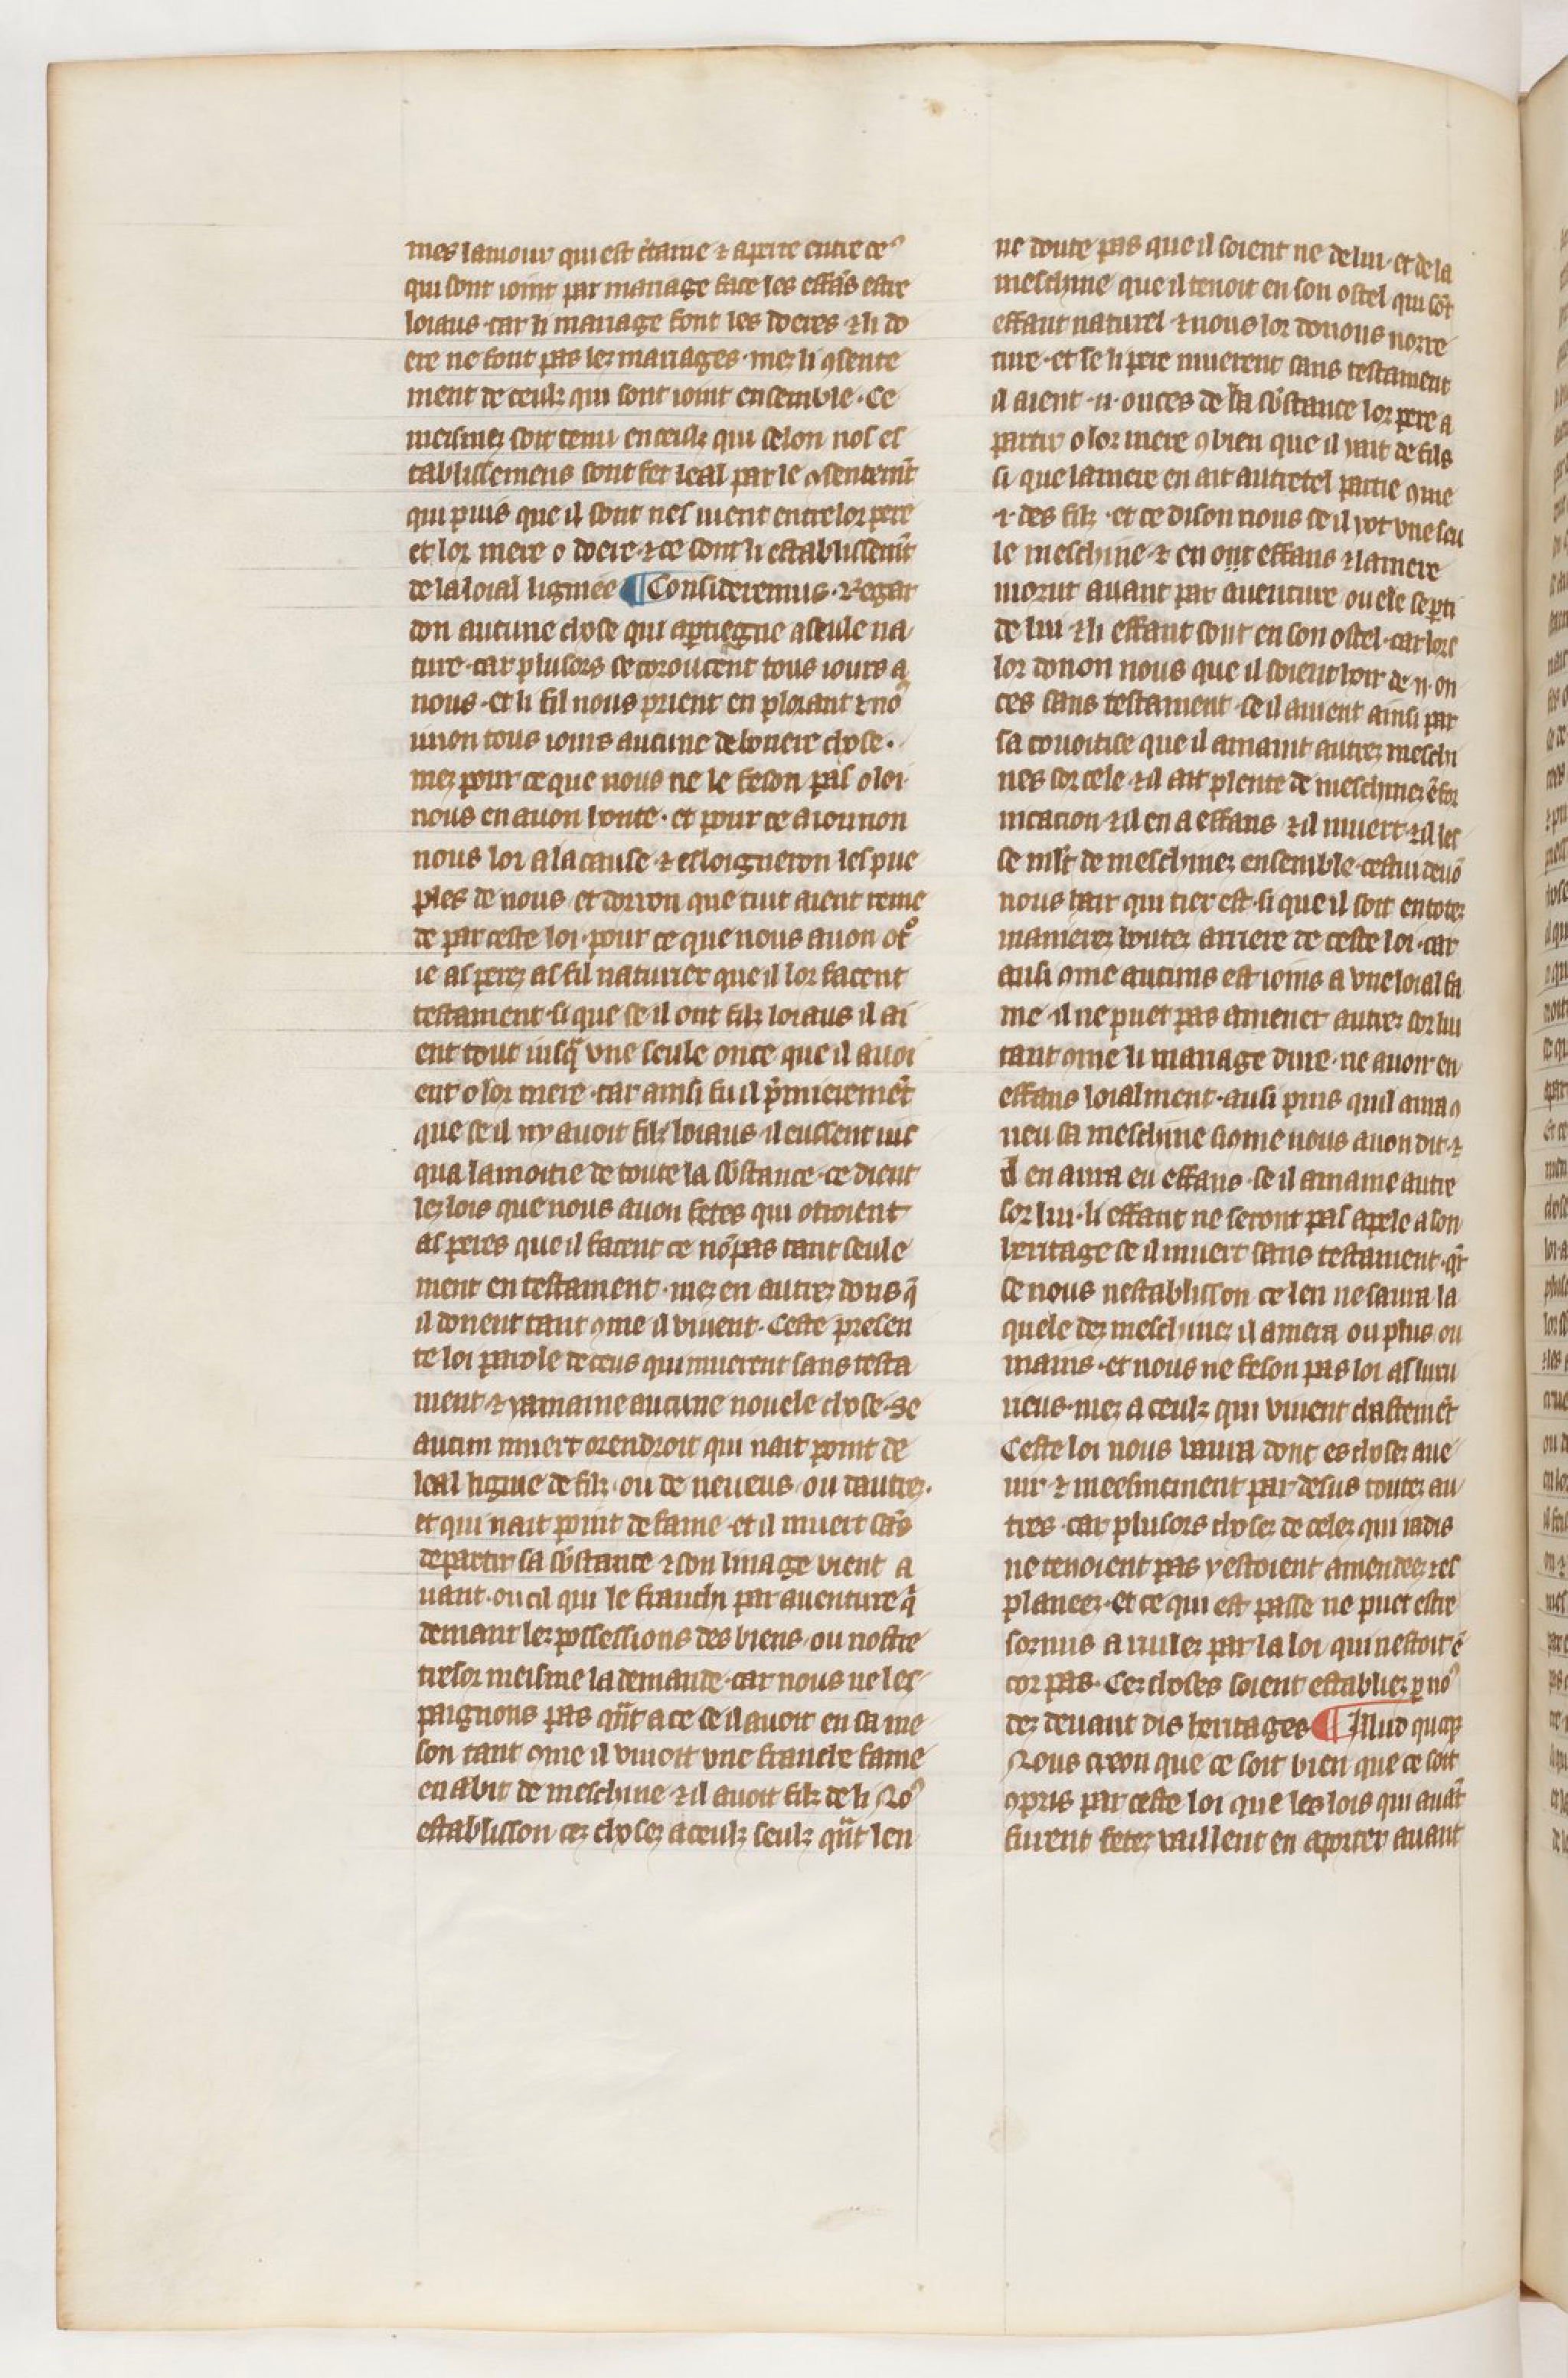 mes lamour qui est c̃taine ⁊ aperte entre ceꝰ
qui sont ioint par mariage face les effãs estre
loiaus · car li mariage font les doeres ⁊ li do
ere ne font pas lez mariages · mez li ꝯsente
ment de ceulz qui sont ioint ensemble · Ce
meismez soit tenu en ceulz qui selon nos es
tablissemens sont fet leal par le ꝯsentemẽt
qui puis que il sont nes vient entre lor pere
et lor mere o doere · ⁊ ce sont li establissemẽt
de la loial ligniee ¶ Consideremus · Regar
don aucune chose qui aꝑtiegne a seule na
ture · car plusors se coroucent tous iours a
nous · et li fil nous prient en plorant ⁊ noꝰ
veon tous iours aucune debonere chose ·
mez pour ce que nous ne le feson pas o loi
nous en avon honte · et pour ce aiouron
nous loi a la cause ⁊ esloigneron les pue
ples de nous et dorron que tuit aient reme
de par ceste loi · pour ce que nous auon otͦ
ie as perez as fil naturier que il lor facent
testament · si que se il ont filz loiaus il ai
ent tout iusq̃ vne seule once que il avoi
ent o lor mere · car ainsi fu il p̃mieremẽt
que se il ny auoit filz loiaus il eussent ius
qua la moitie de toute la sb̃stance · ce dient
lez lois que nous auon fetes qui otroient
as peres que il facent ce nõ pas tant seule
ment en testament · mez en autrez dons q̃
il donent tant ꝯme il viuent · Ceste presen
te loi parole de ceus qui muerent sans testa
ment ⁊ yamaine aucune nouele chose · Se
aucun muert orendroit qui nait point de
leal ligniee de filz · ou de neueus · ou dautrez ·
et qui nait point de fame · et il muert sãs
departir sa sb̃stance ⁊ son linage vient a
uant · ou cil qui le franchi par auenture q̃
demant lez possessions des biens · ou nostre
tresor meisme la demande · car nous ne les
paignons pas qñt a ce se il auoit en sa me
son tant ꝯme il viuoit vne franche fame
en abit de meschine ⁊ il auoit filz de li Noꝰ
establisson cez chosez a ceulz seulz qñt len
ne doute pas que il soient ne de lui · et de la
meschine que il tenoit en son ostel qui sõt
effant naturel ⁊ nous lor donons norre
ture · et se li pere muerent sans testament
il aient · ii · onces de la sb̃stance lor pere a
partir o lor mere ꝯbien que il yait de fils
si que la mere en ait autretel partie ꝯme
⁊ des filz · et ce dison nous se il yot vne seu
le meschine ⁊ en ont effans ⁊ la mere
morut auant par auenture · ou ele se parti
de lui ⁊ li effant sont en son ostel · car lors
lor donon nous que il soient hoir de · ii · on
ces sans testament · se il auient ainsi par
sa couoitise que il amaint autrez meschi
nes sor cele · ⁊ il ait plente de meschinez ẽ for
nicacion ⁊ il en a effans ⁊ il muert · ⁊ il les
se mlt̃ de meschinez ensemble · cestui deuõ
nous hair qui tier est · si que il soit en totez
manierez boutez arriere de ceste loi · car
ausi ꝯme aucuns est ioins a vne loial fa
me · il ne puet pas amener autrez sor lui
tant ꝯme li mariage dure · ne auoir en
effans loialment · ausi puis quil aura ꝯ
neu sa meschine si ꝯme nous auon dit · ⁊
il en aura eu effans · se il amaine autre
sor lui · li effant ne seront pas apele a son
heritage se il muert sans testament · qr̃
se nous nestablisson ce len ne saura la
quele dez meschinez il amera ou plus ou
mains · et nous ne feson pas loi as luxu
rieus · mez a ceulz qui viuent chastemẽt
Ceste loi nous vaura donc es chosez aue
nir · ⁊ meesmement par desus toutez au
tres · car plusors chosez de celez qui iadis
ne tenoient pas y estoient amendeez ⁊ es
planeez · et ce qui est passe ne puet estre
sormis a rulez par la loi qui nestoit ẽ
cor pas · Cez choses soient establiez ꝑ noꝰ
dez deuant dis heritages ¶ Illud quoꝗ
Nous creon que ce soit bien que ce soit
ꝯpris par ceste loi que les lois qui auãt
furent fetez vaillent en aporter auant